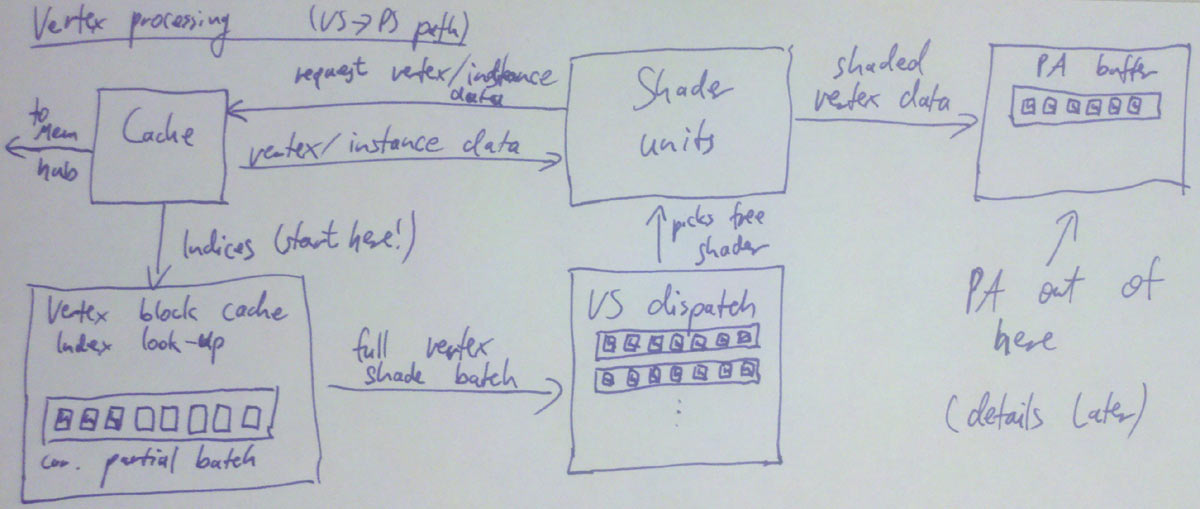 Vertex processing (VS→PS path)
request vertex/instance
data
to
Mem
hub
Cache
vertex/instance data
Shader
units
shaded
vertex data
PA buffer
Indices (start here!)
picks free
shader
Vertex block cache
Index look-up
cur. partial batch
full vertex
shade batch
VS dispatch
PA out of
here
(details later)